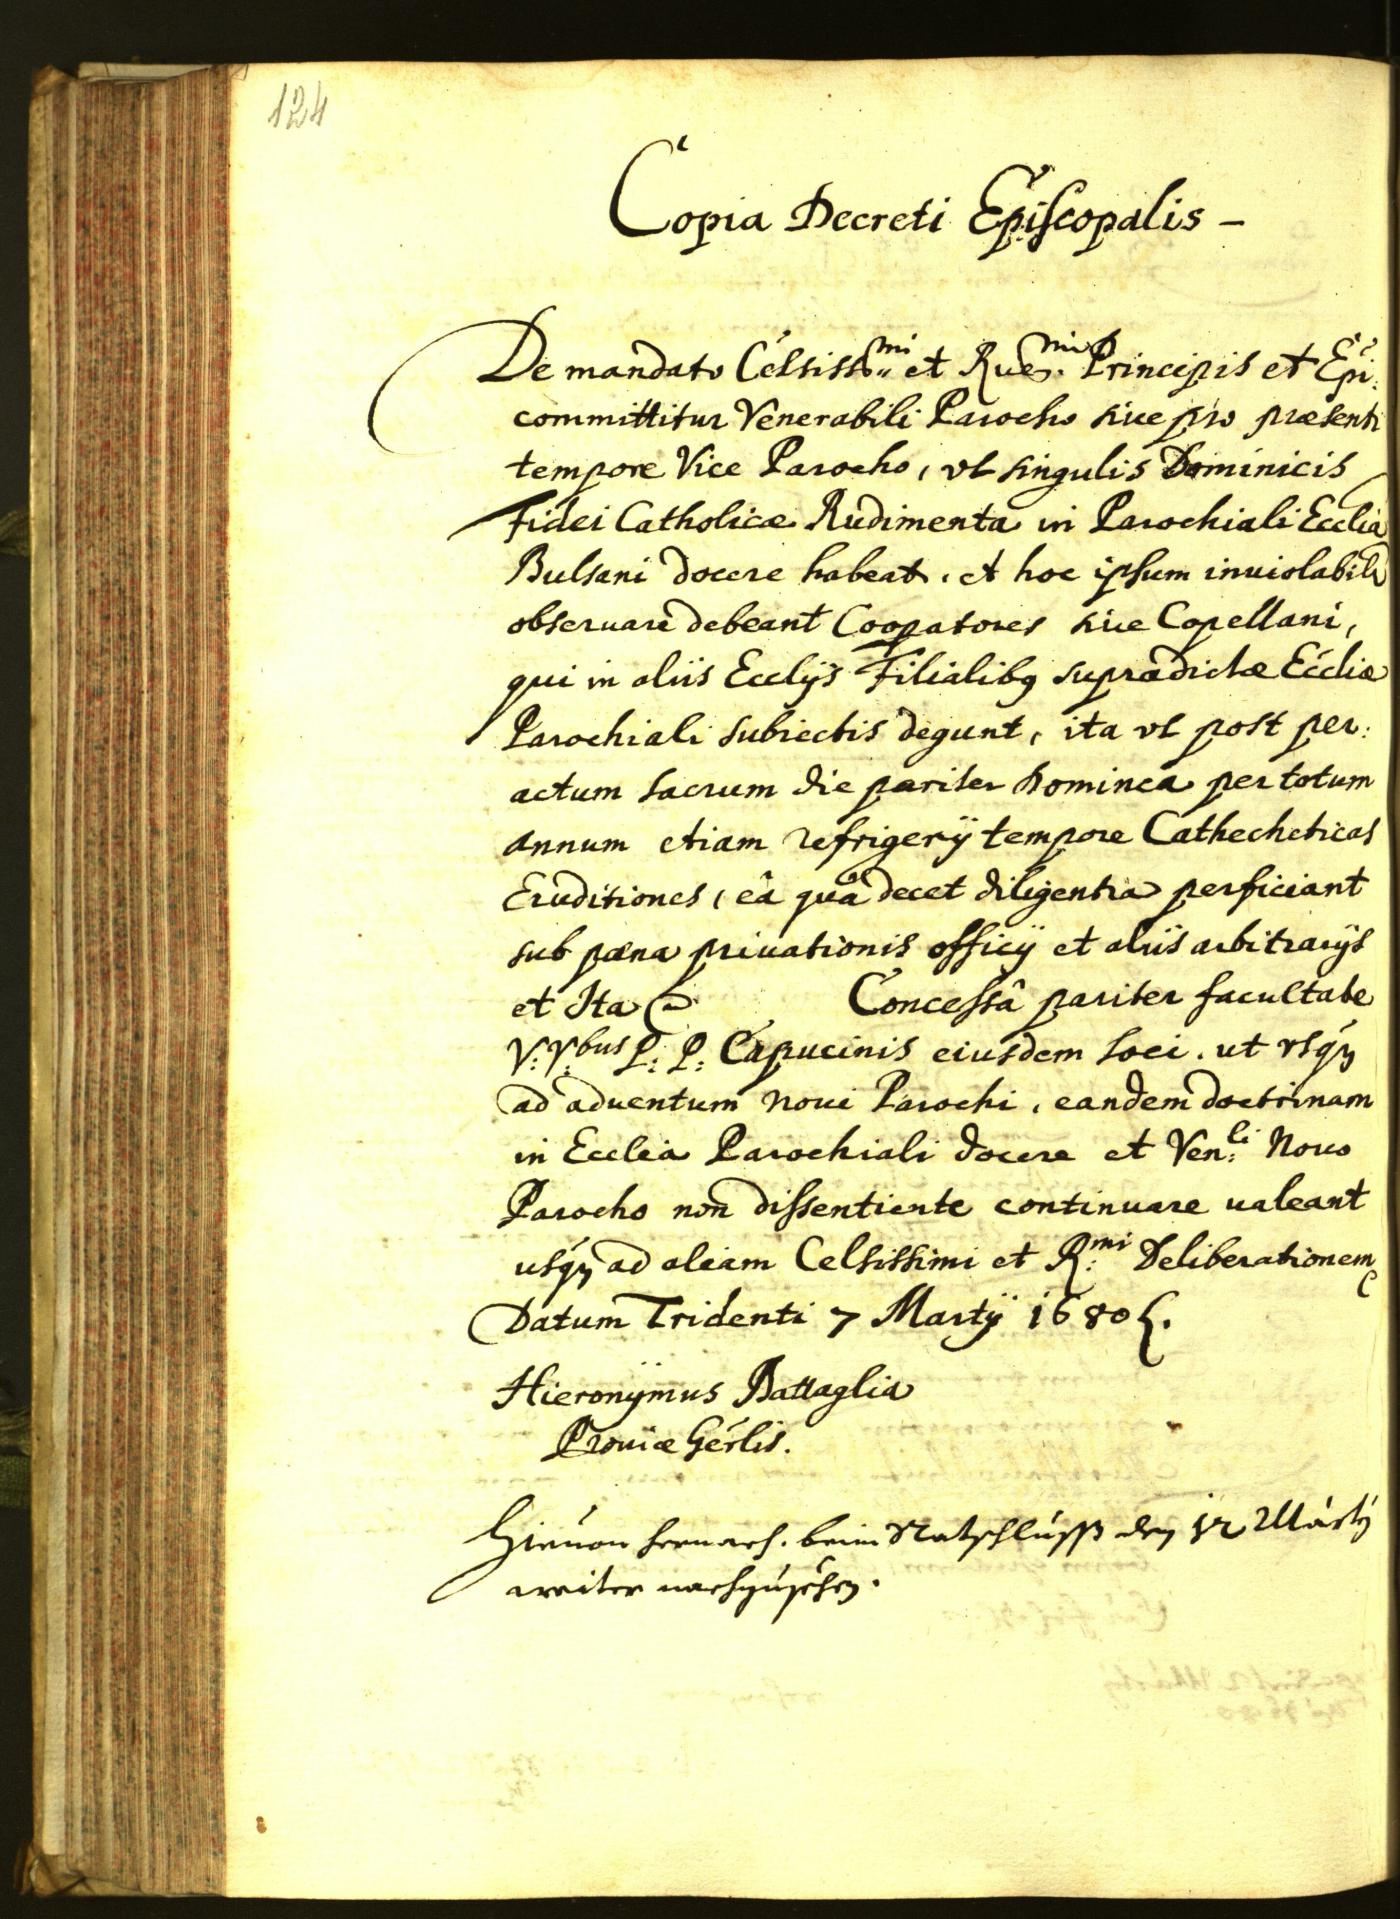 124
Copia Decreti Episcopalis –
De mandato Celsiss:mi et Rue:mi Principis et Epi:
committitur Venerabili Parocho siue pro præsenti
tempore Vice Parocho, vt singulis Dominicis
Fidei Catholicæ Rudimenta in Parochiali Ecclia
Bulsani docere habeat, et hoc ipsum inuiolabilr
obseruare debeant Coopatores siue Capellani,
qui in aliis Eccliis Filialibq supradictæ Eccliæ
Parochiali subiectis degunt, ita vt post per:
actum sacrum die pariter Dominca per totum
annum etiam refrigerÿ tempore Cathecheticas
Eruditiones, eâ quâ decet diligentia perficiant
sub pæna priuationis officÿ et aliis arbitrarÿs
et Ita Concessâ pariter facultate
V: V:bus P: P: Capucinis eiusdem loci, ut vsq
ad aduentum noui Parochi, eandem doctrinam
in Ecclia Parochiali docere et Ven:li Nouo
Parocho non dissentiente continuare ualeant
usq ad aliam Celsissimi et R:mi Deliberationem
Datum Tridenti 7 Martÿ 1680
Hieronÿmus Battaglia
Prouiæ Gerlis.
Hieuon hernach. beim Ratschluss den 12 Martÿ
weiter nachzusechen.